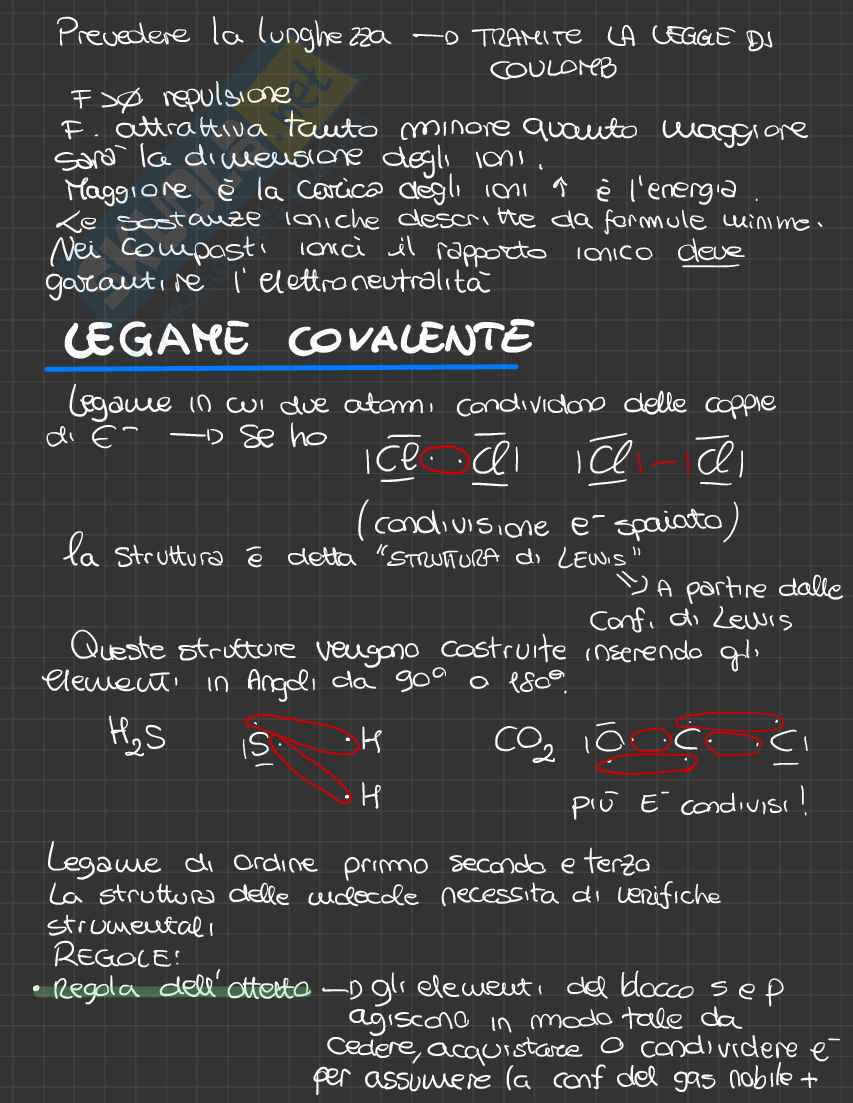 Prevedere la lunghezza —> TRAMITE LA LEGGE DI
COULOMB
F>0 repulsione
F. attrattiva tanto minore quanto maggiore
sarà la dimensione degli ioni.
Maggiore è la carica degli ioni ↑ è l'energia.
Le sostanze ioniche descritte da formule minime.
Nei Composti ionici il rapporto ionico deve
garantire l'elettroneutralità
LEGAME COVALENTE
Legame in cui due atomi condividono delle coppie
di E⁻ —> Se ho
|Cl· ·Cl| |Cl|-|Cl|
(condivisione e⁻ spaiato)
la struttura è detta "STRUTTURA di LEWIS"
=> A partire dalle
conf. di Lewis
Queste strutture vengono costruite inserendo gli
elementi in Angoli da 90° o 180°.
H₂S |S· ·H CO₂ |O· ·C· ·C|
·H
più E⁻ condivisi!
Legame di ordine primo secondo e terzo
La struttura delle molecole necessita di verifiche
strumentali
REGOLE:
· Regola dell'ottetto —> gli elementi del blocco s e p
agiscono in modo tale da
cedere, acquistare o condividere e⁻
per assumere la conf del gas nobile +
skuola.net